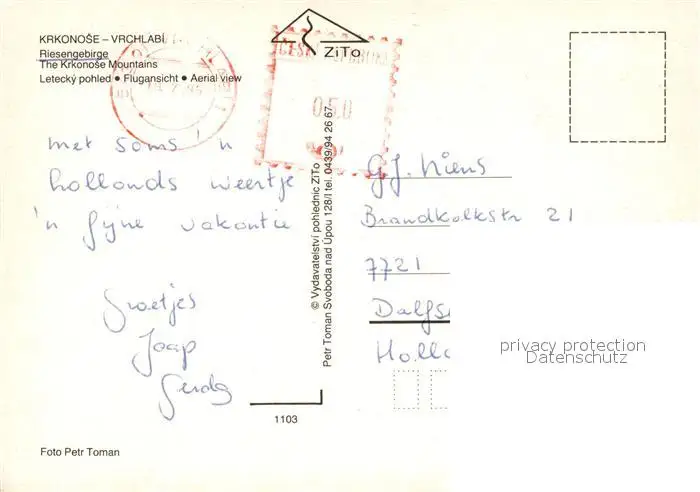 KRKONOŠE – VRCHLABÍ
Riesengebirge
The Krkonoše Mountains
Letecký pohled ● Flugansicht ● Aerial view
ZiTo
050
met soms 'n
hollands weertje
'n fijne vakantie
Groetjes
Jaap
Gerda
© Vydavatelství pohlednic ZiTo
Petr Toman Svoboda nad Úpou 128/I tel. 0439/94 26 67
G.J. Niens
Brandkolkstr 21
7721
Dalfs
Holl
privacy protection
Datenschutz
1103
Foto Petr Toman